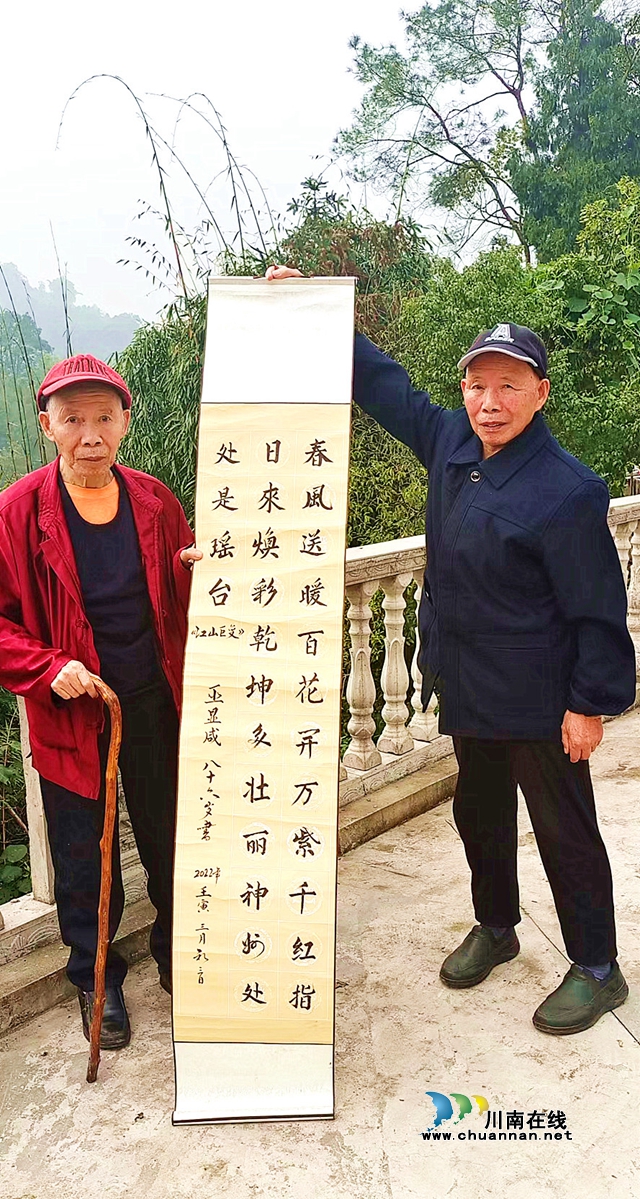 春風送暖百花开万紫千红指
日來焕彩乾坤多壮丽神州处
处是瑶台
《江山巨变》
巫显咸 八十六岁書
2022年 壬寅 三月
A
川南在线
www.chuannan.net